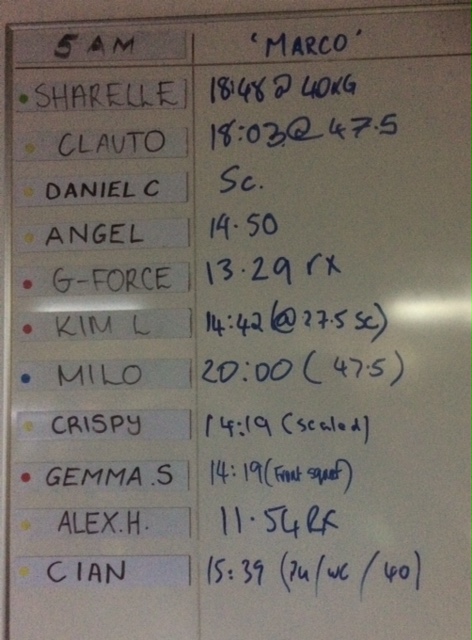 5 AM 'MARCO'
SHARELLE 18:48 @ 40KG
CLAUTO 18:03 @ 47.5
DANIEL C Sc.
ANGEL 14.50
G-FORCE 13.29 rx
KIM L 14:42 (@ 27.5 sc)
MILO 20:00 ( 47.5)
CRISPY 14:19 (scaled)
GEMMA.S 14:19 (Front squat)
ALEX.H. 11.54 RX
CIAN 15:39 (/ WC / 40)